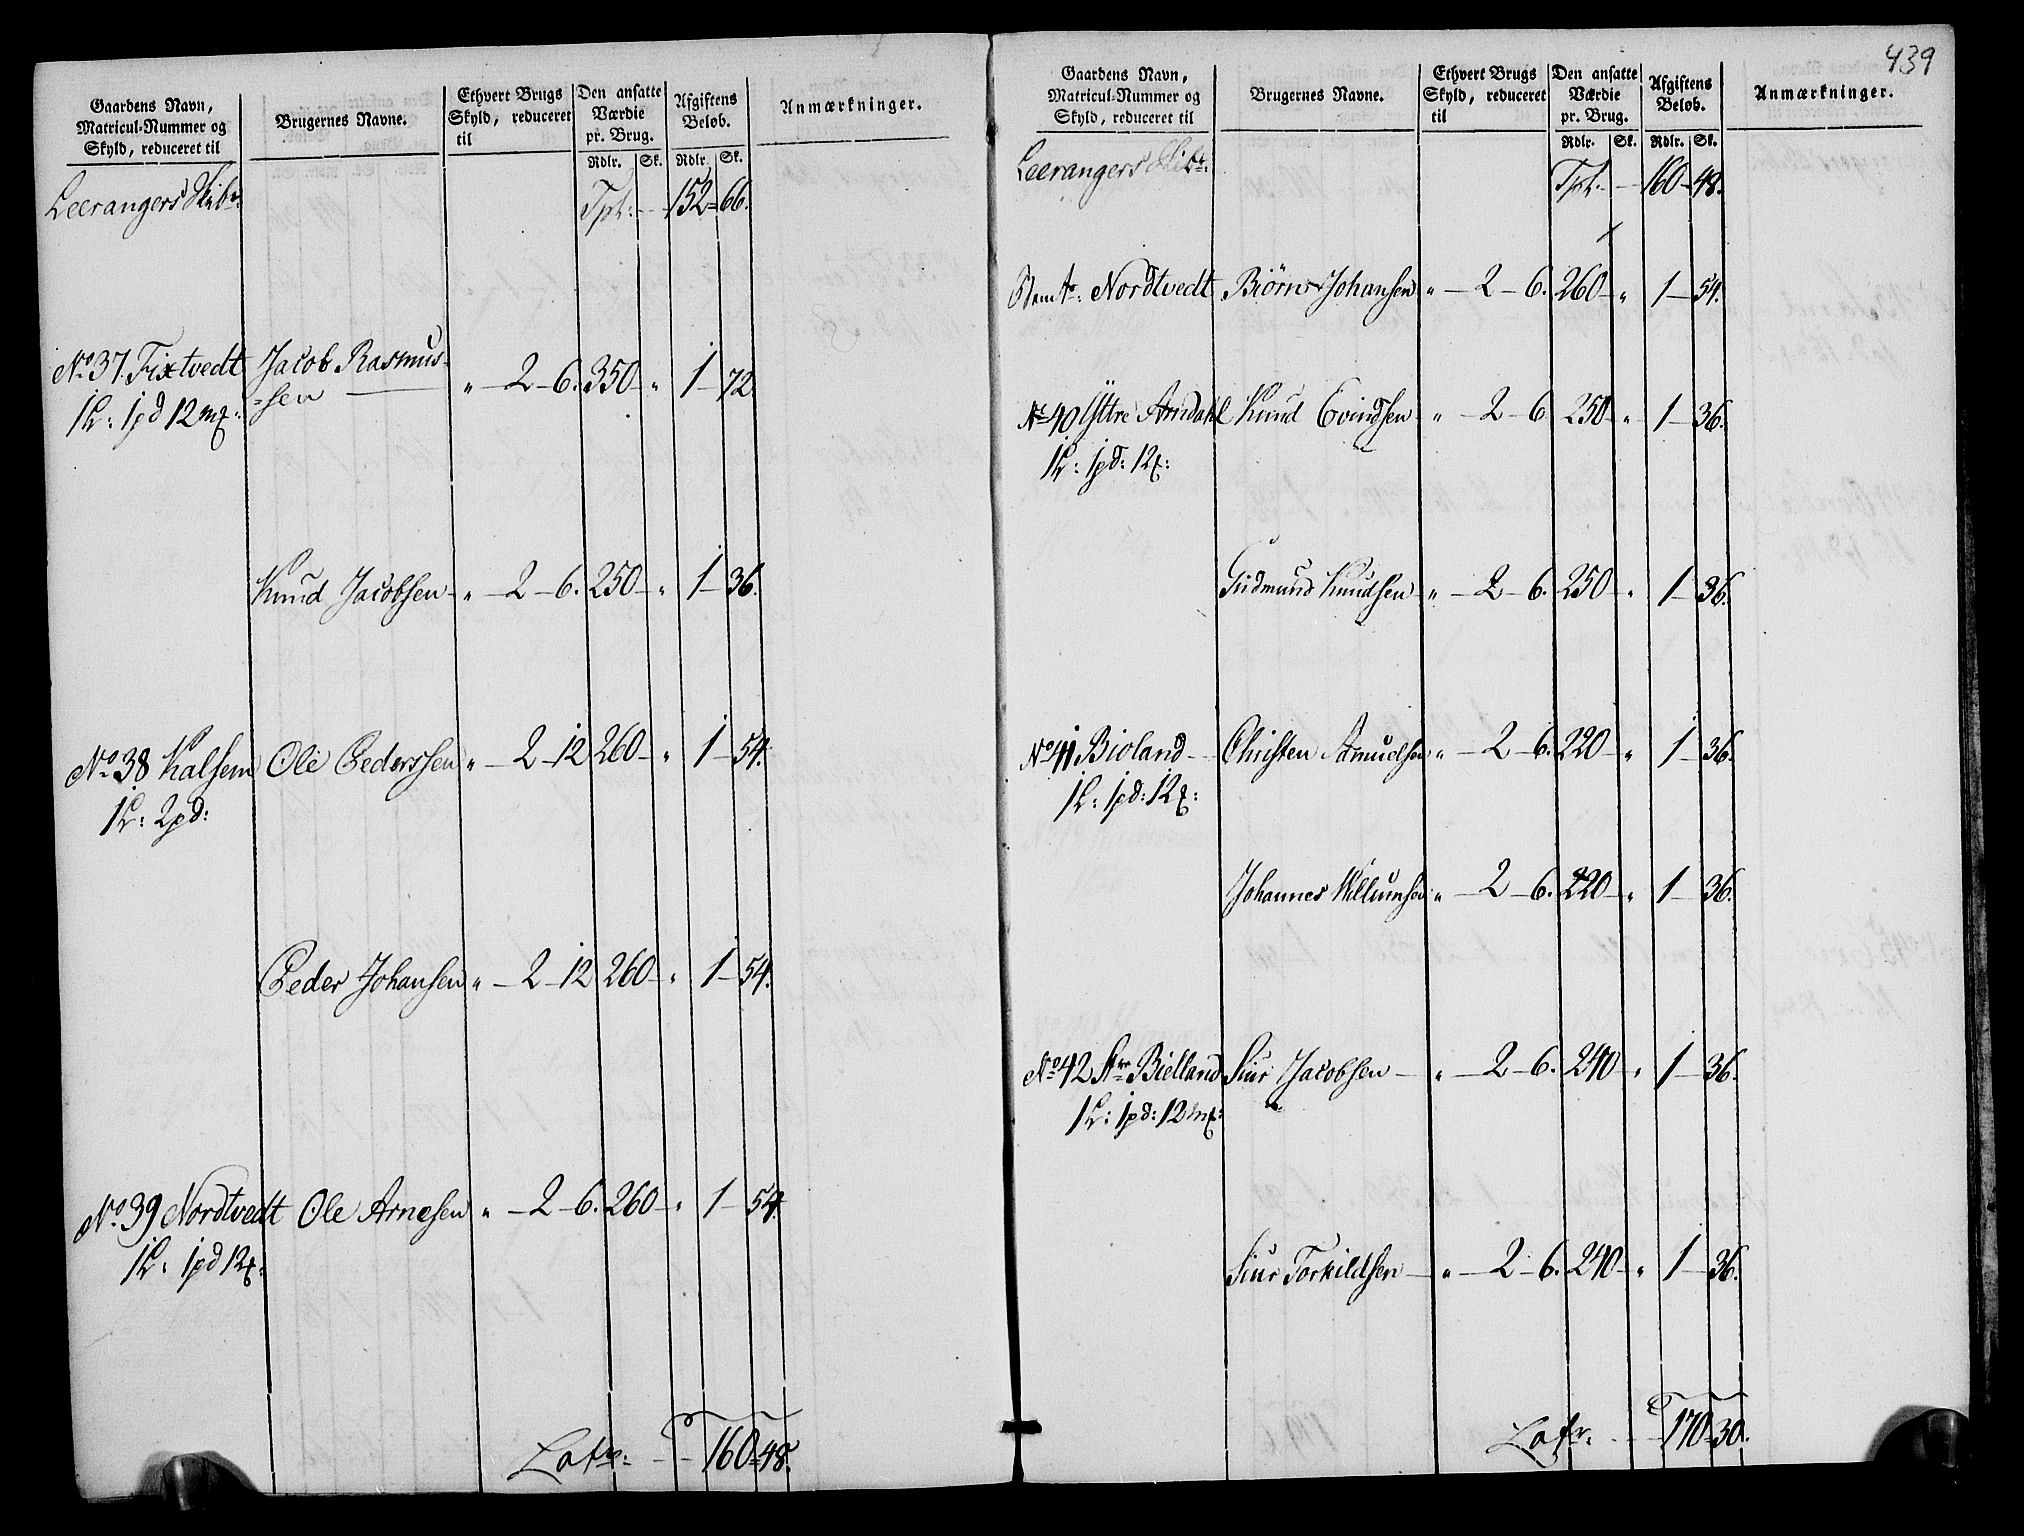 Gaardens Navn,
Matricul-Nummer og
Skyld, reduceret til
Brugernes Navne.
Ethvert Brugs
Skyld, reduceret
til
Den ansatte
Værdie
pr. Brug.
Rdlr. Sk.
Afgiftens
Beløb.
Rdlr. Sk.
Anmærkninger.
Leerangers Skibr. Tpt: 152 - 66.
No 37. Fixtvedt Jacob Rasmus- " - 2 - 6. 350 - " 1 - 72
1 L: 1 pd 12 mk: -sen
Knud Jacobsen - " - 2 - 6. 250 - " 1 - 36.
No 38 Kalsem Ole Pederssen " - 2 - 12 260 - " 1 - 54.
1 L: 2 pd:
Peder Johansen " - 2 - 12 260 - " 1 - 54.
No 39 Nordtvedt Ole Arnesen " - 2 - 6. 260 - " 1 - 54.
1 L: 1 pd 12 k:
Latr: - 160 - 48.
439
Gaardens Navn,
Matricul-Nummer og
Skyld, reduceret til
Brugernes Navne.
Ethvert Brugs
Skyld, reduceret
til
Den ansatte
Værdie
pr. Brug.
Rdlr. Sk.
Afgiftens
Beløb.
Rdlr. Sk.
Anmærkninger.
Leerangers Skibr. Tpt: - 160 - 48.
Nordtvedt Biørn Johansen " - 2 - 6. 260 - " 1 - 54.
No 40 Yttre Arndahl Knud Evindsen - " - 2 - 6 250 - " 1 - 36.
1 L: 1 pd: 12 k:
Gudmund Knudsen " - 2 - 6. 250 - " 1 - 36.
No 41 Bioland - Christen Amudsen " - 2 - 6. 220 - " 1 - 36.
1 L: 1 pd: 12 k:
Johannes Willumsen " - 2 - 6. 220 - " 1 - 36.
No 42 Str Bielland Siur Jacobsen - " - 2 - 6. 240 - " 1 - 36.
1 L: 1 pd: 12 mk:
Siur Torkildsen - " - 2 - 6. 240 - " 1 - 36.
Latr. - 170 - 30.